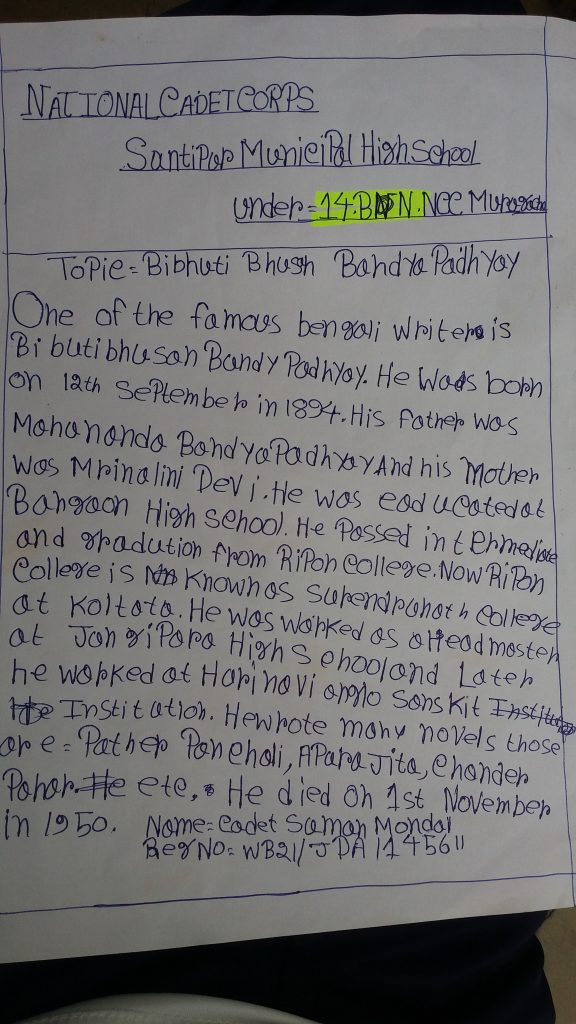 NATIONAL CADET CORPS
Santipur Municipal High School
under = 14.BN.NCC
Topic = Bibhuti Bhusn Bandya Padhyay
One of the famous bengali writer is
Bibutibhusan Bandy Padhyay. He was born
on 12th September in 1894. His father was
Mahananda BandyaPadhyay And his Mother
was Mrinalini Devi. He was eaducated at
Bangaon High School. He Passed intermediate
and gradution from RiPon College. Now RiPon
College is Known as Surendranath College
at Koltata. He was worked as a Headmaster
at JangiPara High School and Later
he worked at Harinavi anglo Sanskit
Institution. He wrote many novels those
are = Pather Panchali, AParaJita, Chander
Pahar etc. He died on 1st November
in 1950. Name = Cadet Suman Mondal
Reg No = WB21/JDA/145611